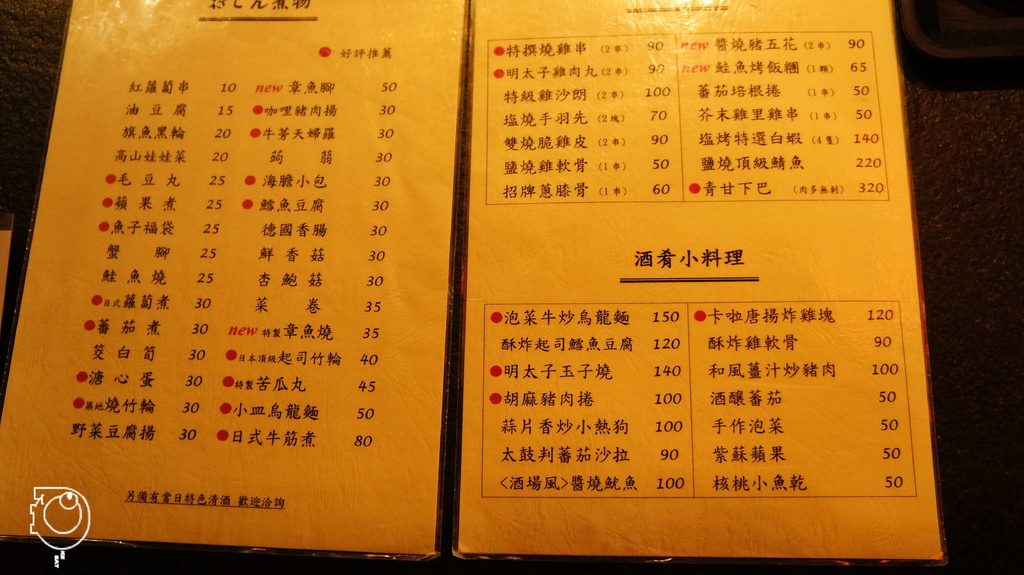 おでん煮物
● 好評推薦
紅蘿蔔串 10
油豆腐 15
旗魚黑輪 20
高山娃娃菜 20
●毛豆丸 25
●蘋果煮 25
●魚子福袋 25
蟹腳 25
鮭魚燒 25
●日式蘿蔔煮 30
●蕃茄煮 30
筊白筍 30
●溏心蛋 30
●築地燒竹輪 30
野菜豆腐揚 30
new 章魚腳 50
●咖哩豬肉揚 30
●牛蒡天婦羅 30
蒟蒻 30
●海膽小包 30
●鱈魚豆腐 30
德國香腸 30
鮮香菇 30
杏鮑菇 30
菜卷 35
new 特製章魚燒 35
●日本頂級起司竹輪 40
●特製苦瓜丸 45
●小皿烏龍麵 50
●日式牛筋煮 80
另備有當日特色清酒 歡迎洽詢
●特撰燒雞串 (2串) 90
●明太子雞肉丸 (2串) 90
特級雞沙朗 (2串) 100
塩燒手羽先 (2塊) 70
雙燒脆雞皮 (2串) 90
鹽燒雞軟骨 (1串) 50
招牌蔥膝骨 (1串) 60
new 醬燒豬五花 (2串) 90
new 鮭魚烤飯糰 (1顆) 65
蕃茄培根捲 (1串) 50
芥末雞里雞串 (1串) 50
塩烤特選白蝦 (4隻) 140
鹽燒頂級鯖魚 220
●青甘下巴 (肉多無刺) 320
酒肴小料理
●泡菜牛炒烏龍麵 150
酥炸起司鱈魚豆腐 120
●明太子玉子燒 140
●胡麻豬肉捲 100
蒜片香炒小熱狗 100
太鼓判蕃茄沙拉 90
<酒場風>醬燒魷魚 100
●卡啦唐揚炸雞塊 120
酥炸雞軟骨 90
和風薑汁炒豬肉 100
酒釀蕃茄 50
手作泡菜 50
紫蘇蘋果 50
核桃小魚乾 50